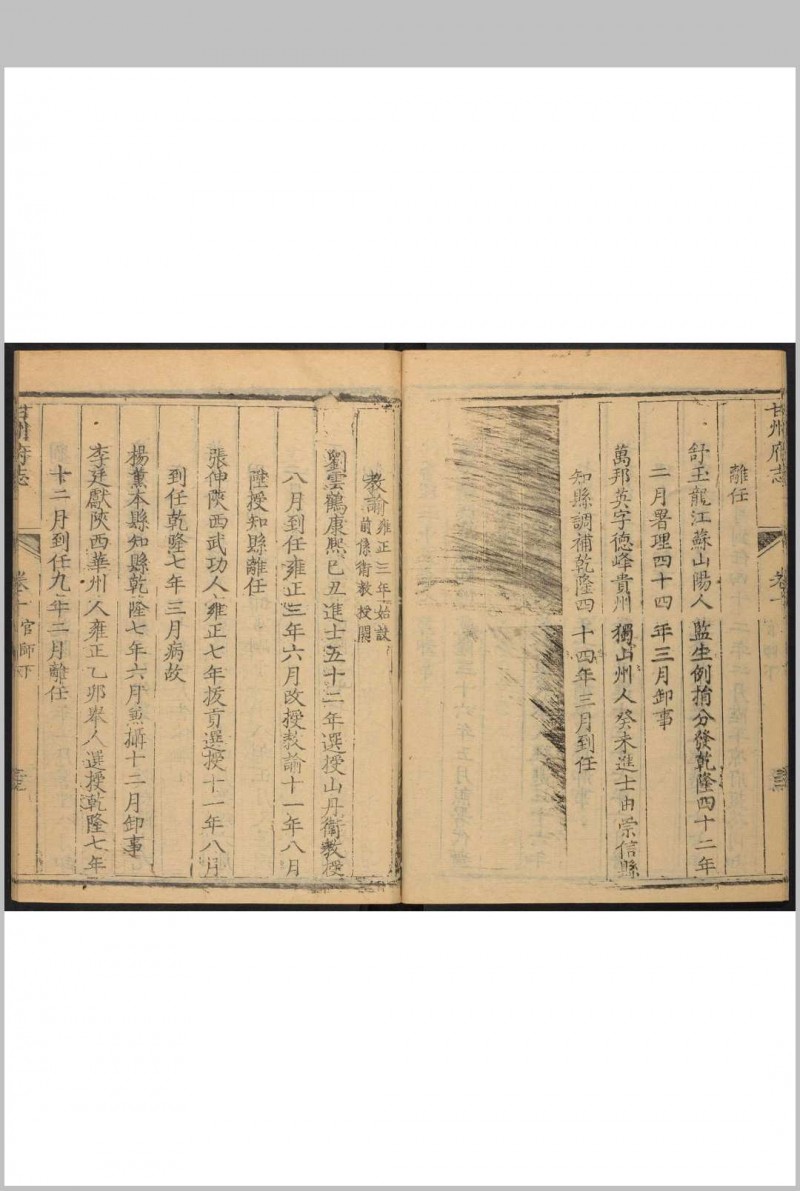 甘州府志
卷十
離任
舒玉龍江蘇山陽人監生例捐分發乾隆四十二年
二月署理四十四年三月卸事
萬邦英字德峰貴州獨山州人癸未進士由崇信縣
知縣調補乾隆四十四年三月到任
教諭雍正三年始設
前係衛教授開
劉雲鶴康熙己丑進士五十二年選授山丹衛教授
八月到任雍正三年六月改授教諭十一年八月
陞授知縣離任
張伸陝西武功人雍正七年拔貢選授十一年八月
到任乾隆七年三月病故
楊薰本縣知縣乾隆七年六月兼攝十二月卸事
李廷獻陝西華州人雍正乙卯舉人選授乾隆七年
十二月到任九年二月離任
甘州府志
卷十官師下